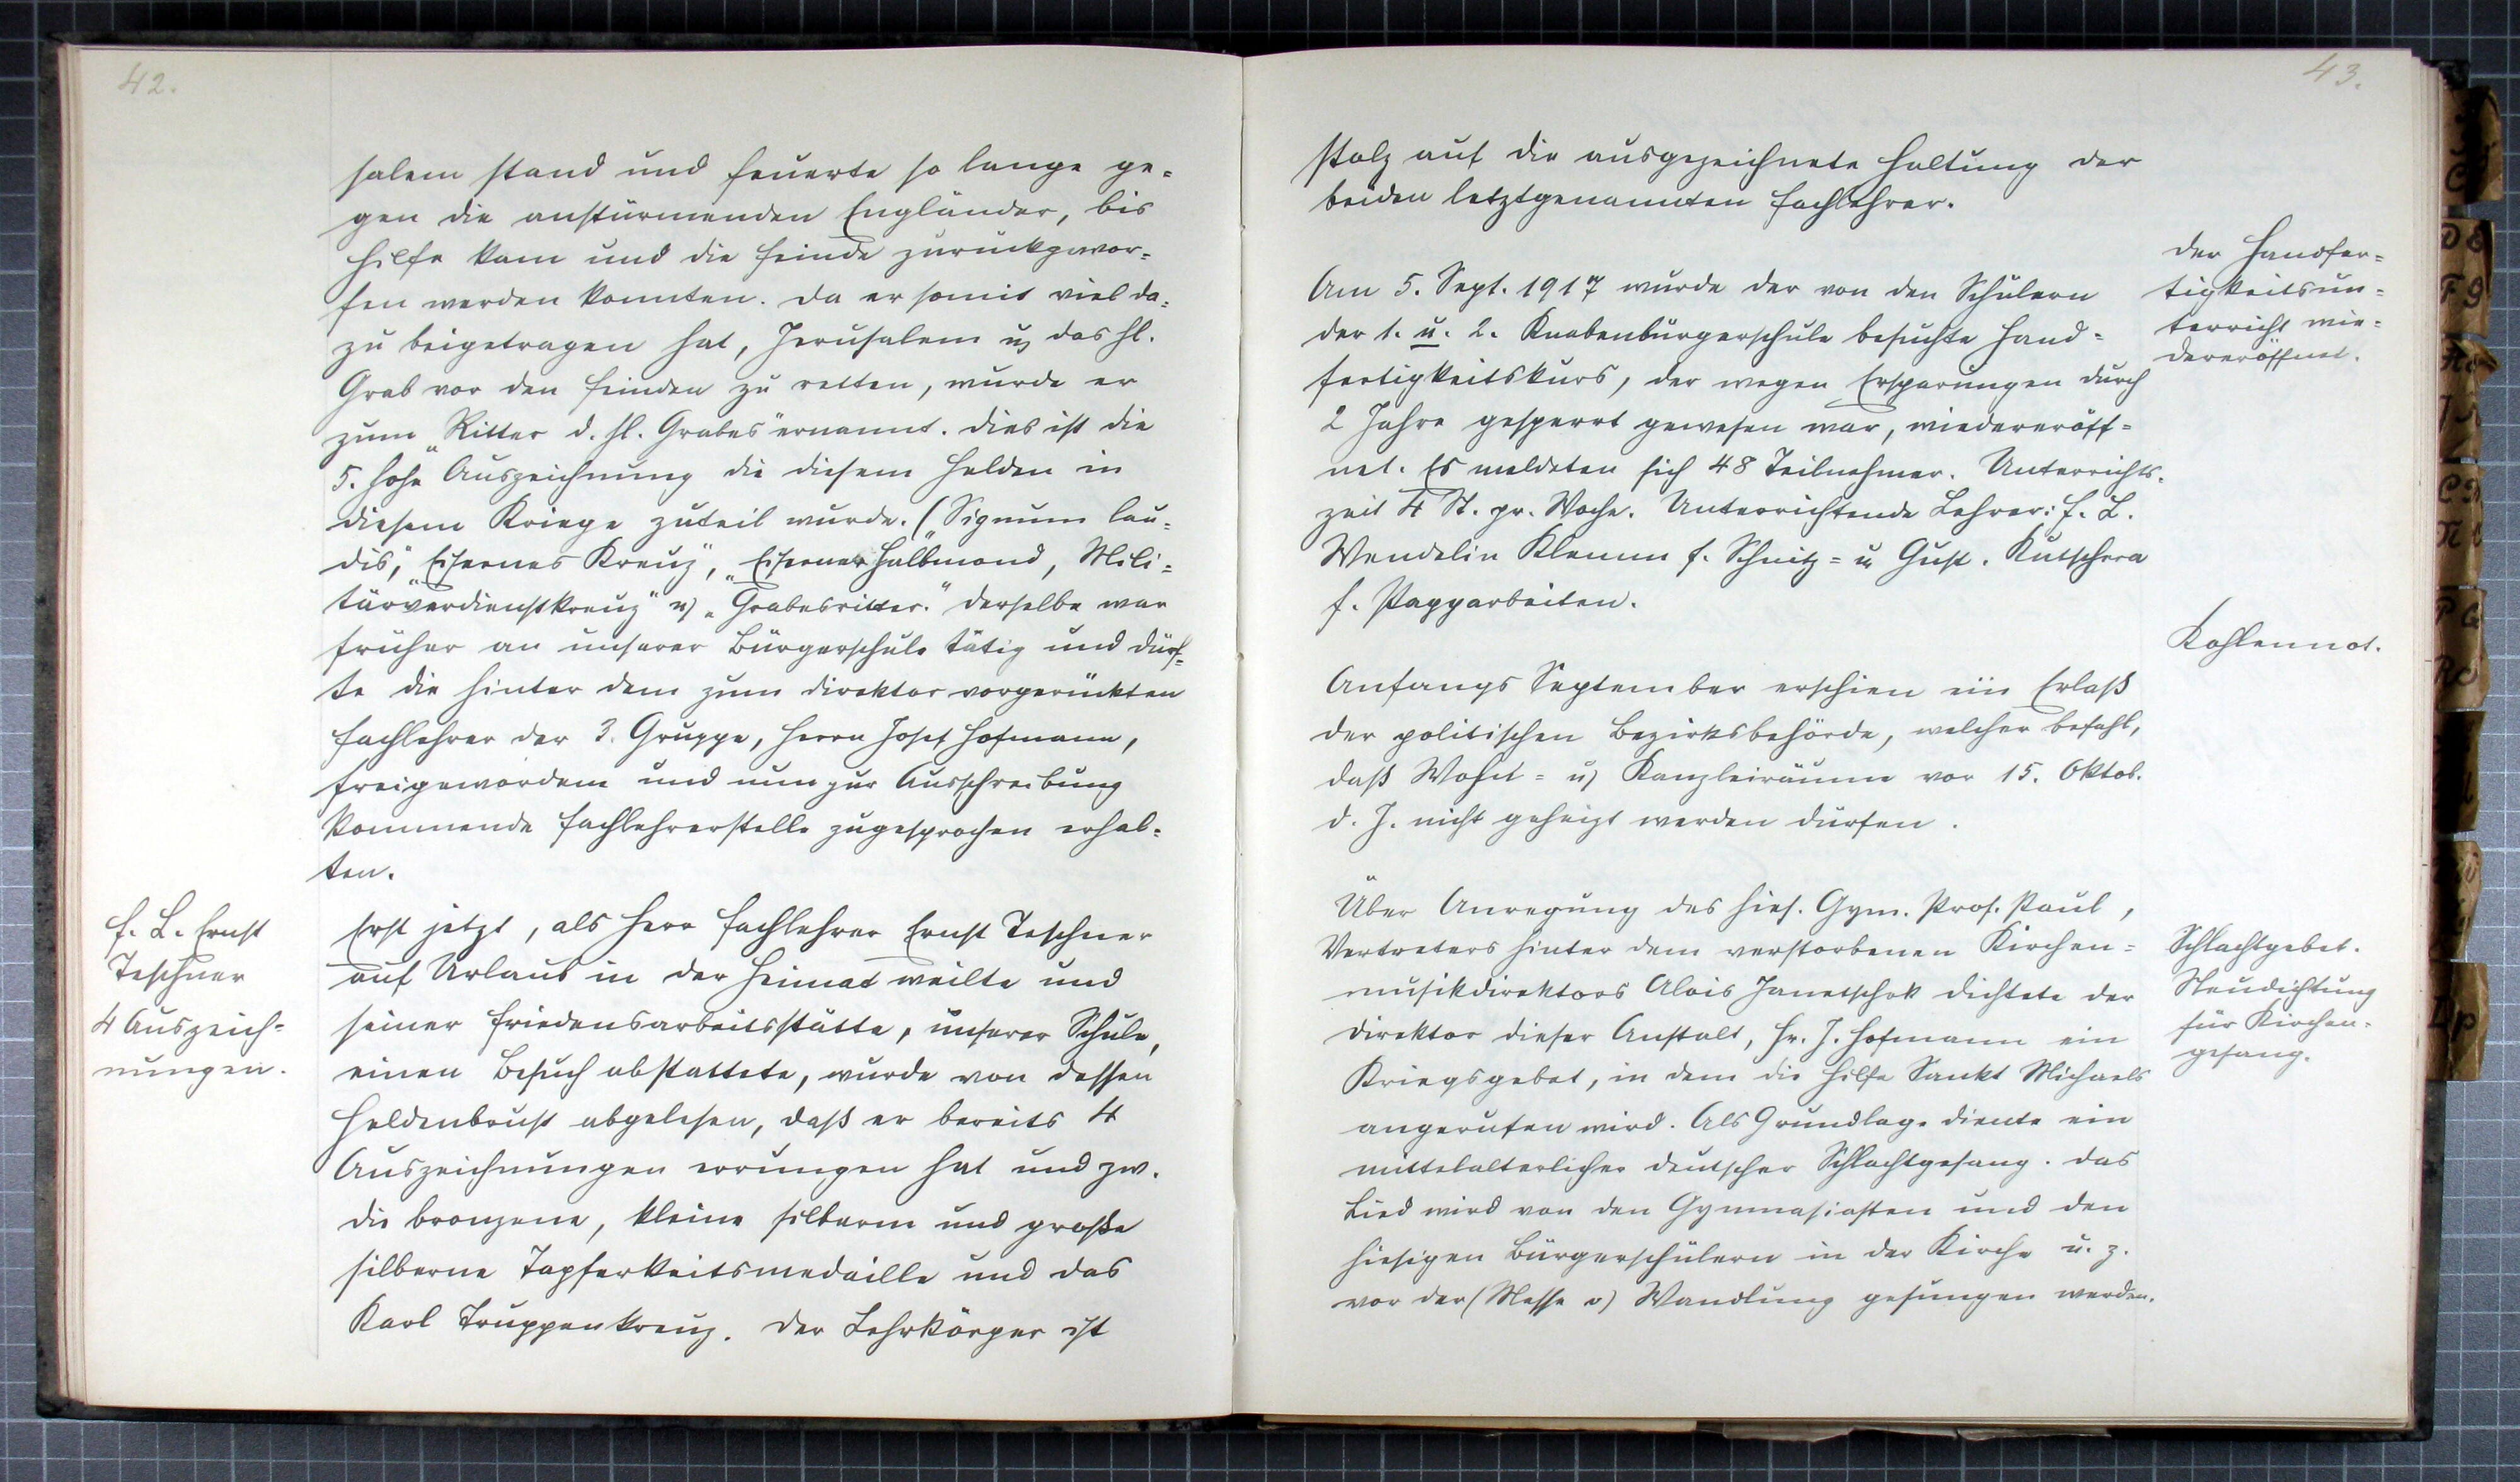 42.
salem stand und feuerte so lange ge=
gen die anstürmenden Engländer, bis
Hilfe kam und die Feinde zurückgewor=
fen werden konnten. Da er somit viel da=
zu beigetragen hat, Jerusalem u. das hl.
Grab vor den Feinden zu retten, wurde er
zum „Ritter d. hl. Grabes" ernannt. Dies ist die
5. hohe Auszeichnung die diesem Helden in
diesem Kriege zuteil wurde. („Signum lau=
dis," „Eisernes Kreuz", „Eiserner Halbmond, Mili=
tärverdienstkreuz" u. „Grabesritter." Derselbe war
früher an unserer Bürgerschule tätig und dürf=
te die hinter dem zum Direktor vorgerückten
Fachlehrer der 3. Gruppe, Herrn Josef Hofmann,
freigewordene und nun zur Ausschreibung
kommende Fachlehrerstelle zugesprochen erhal=
ten.
F. L. Ernst
Teschner
4 Auszeich=
nungen.
Erst jetzt, als Herr Fachlehrer Ernst Teschner
auf Urlaub in der Heimat weilte und
seiner Friedensarbeitsstätte, unserer Schule,
einen Besuch abstattete, wurde von dessen
Heldenbrust abgelesen, daß er bereits 4
Auszeichnungen errungen hat und zw.
die bronzene, kleine silberne und große
silberne Tapferkeitsmedaille und das
Karl Truppenkreuz. Der Lehrkörper ist
43.
stolz auf die ausgezeichnete Haltung der
beiden letztgenannten Fachlehrer.
Der Handfer=
tigkeitsun=
terricht wie=
dereröffnet.
Am 5. Sept. 1917 wurde der von den Schülern
der 1. u. 2. Knabenbürgerschule besuchte Hand=
fertigkeitskurs, der wegen Ersparungen durch
2 Jahre gesperrt gewesen war, wiedereröff=
net. Es meldeten sich 48 Teilnehmer. Unterrichts=
zeit 4 St. pr. Woche. Unterrichtende Lehrer: F. L.
Wendelin Klemm f. Schnitz= u. Gust. Kutschera
f. Papparbeiten.
Kohlennot.
Anfangs September erschien ein Erlaß
der politischen Bezirksbehörde, welcher befahl,
daß Wohn= u. Kanzleiräume vor 15. Oktob.
d. J. nicht geheizt werden dürfen.
Schlachtgebet.
Neudichtung
für Kirchen=
gesang.
Über Anregung des hies. Gym. Prof. Paul,
Vertreters hinter dem verstorbenen Kirchen=
musikdirektors Alois Janetschek dichtete der
Direktor dieser Anstalt, Hr. J. Hofmann ein
Kriegsgebet, in dem die Hilfe Sankt Michaels
angerufen wird. Als Grundlage diente ein
mittelalterlicher deutscher Schlachtgesang. Das
Lied wird von den Gymnasiasten und den
hiesigen Bürgerschülern in der Kirche u. z.
vor der (Messe o) Wandlung gesungen werden.